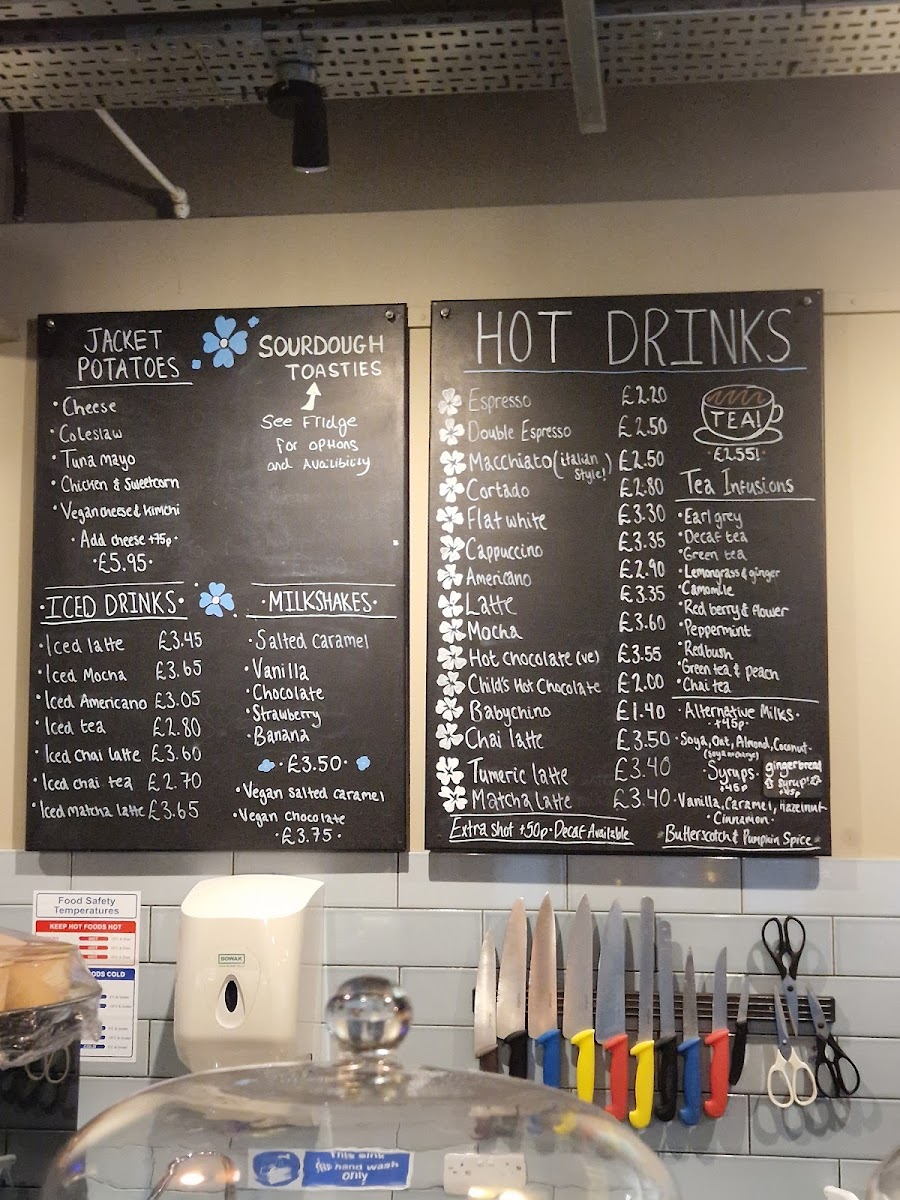 JACKET
POTATOES
• Cheese
• Coleslaw
• Tuna mayo
• Chicken & Sweetcorn
• Vegan cheese & kimchi
• Add cheese +75p •
• £5.95 •
SOURDOUGH
TOASTIES
See Fridge
for options
and Availibiliy
• ICED DRINKS •
• Iced latte £3.45
• Iced Mocha £3.65
• Iced Americano £3.05
• Iced tea £2.80
• Iced Chai latte £3.60
• Iced chai tea £2.70
• Iced matcha latte £3.65
• MILKSHAKES •
• Salted Caramel
• Vanilla
• Chocolate
• Strawberry
• Banana
• £3.50 •
• Vegan Salted caramel
• Vegan Chocolate
• £3.75 •
HOT DRINKS
Espresso £2.20
Double Espresso £2.50
Macchiato (italian Style!) £2.50
Cortado £2.80
Flat white £3.30
Cappuccino £3.35
Americano £2.90
Latte £3.35
Mocha £3.60
Hot Chocolate (ve) £3.55
Child's Hot Chocolate £2.00
Babychino £1.40
Chai latte £3.50
Tumeric latte £3.40
Matcha latte £3.40
Extra shot +50p • Decaf Available
TEA!
• £2.55! •
Tea Infusions
• Earl grey
• Decaf tea
• Green tea
• Lemongrass & ginger
• Camomile
• Red berry & flower
• Peppermint
• Redbush
• Green tea & peach
• Chai tea
• Alternative Milks •
+45p •
• Soya, Oat, Almond, Coconut •
• Syrups •
+45p
gingerbread
syrup!
+45p
• Vanilla, Caramel, Hazelnut
• Cinnamon •
Butterscotch & Pumpkin Spice
Food Safety
Temperatures
KEEP HOT FOODS HOT
ODS COLD
COLD
This sink
for hand wash
only